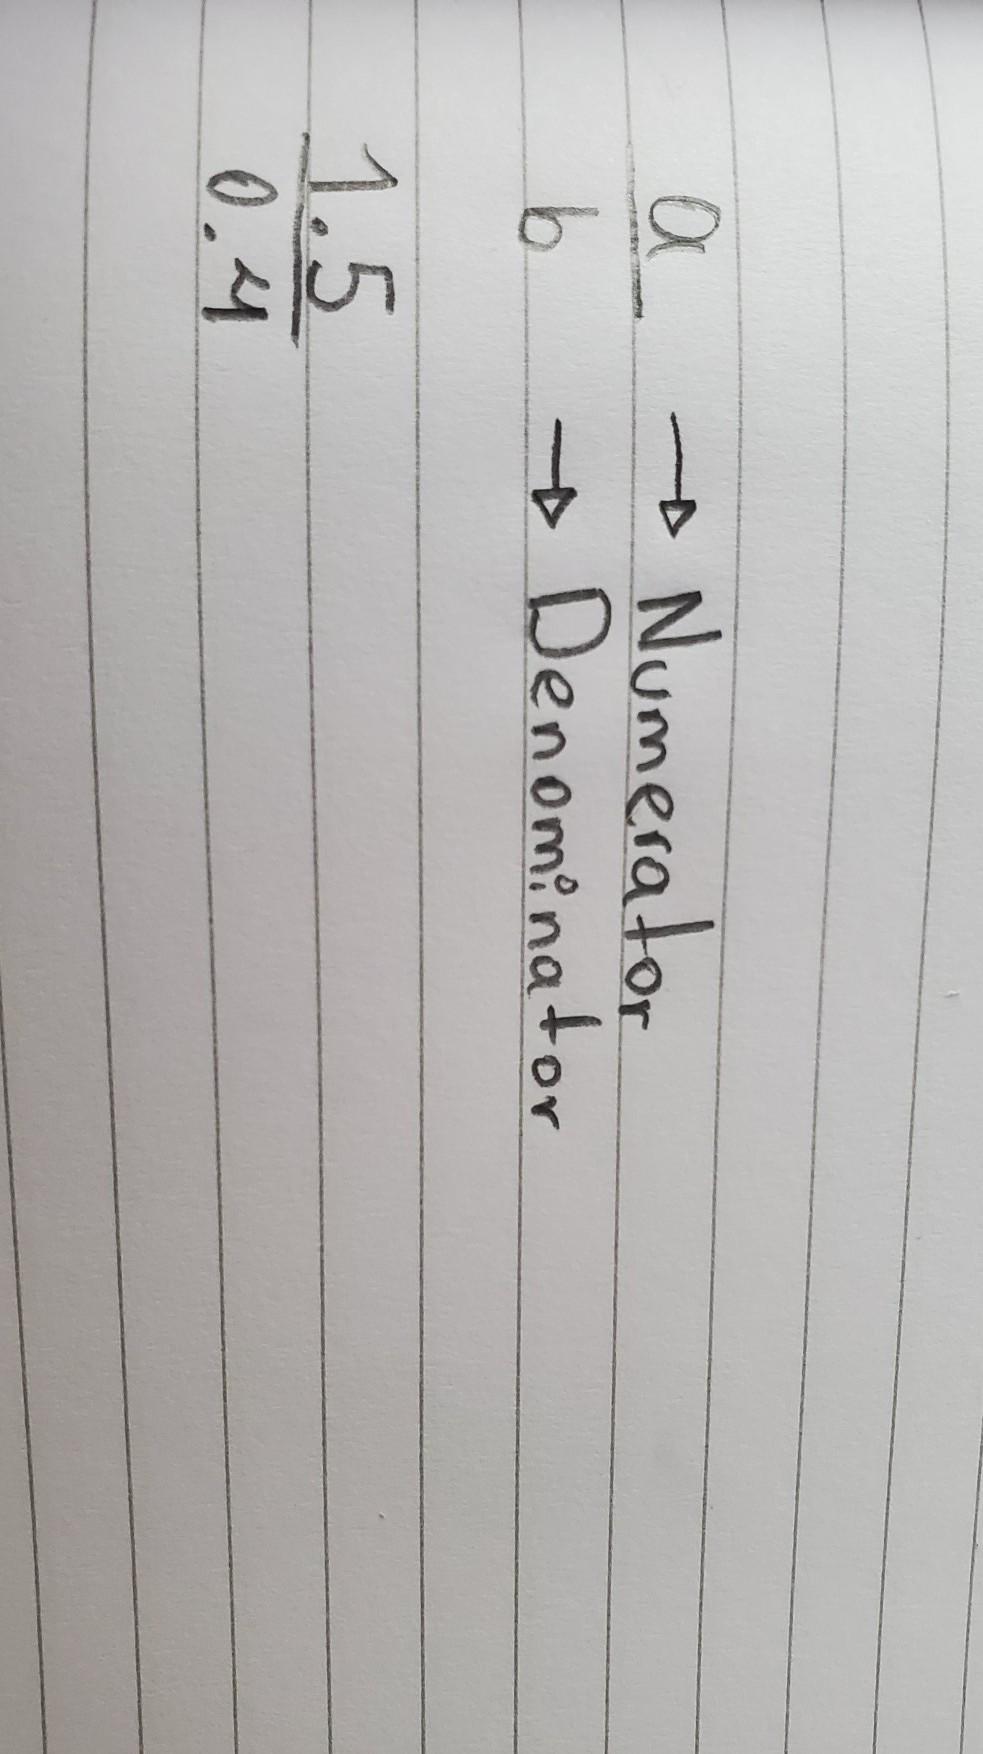 a → Numerator
b → Denominator
1.5
0.4